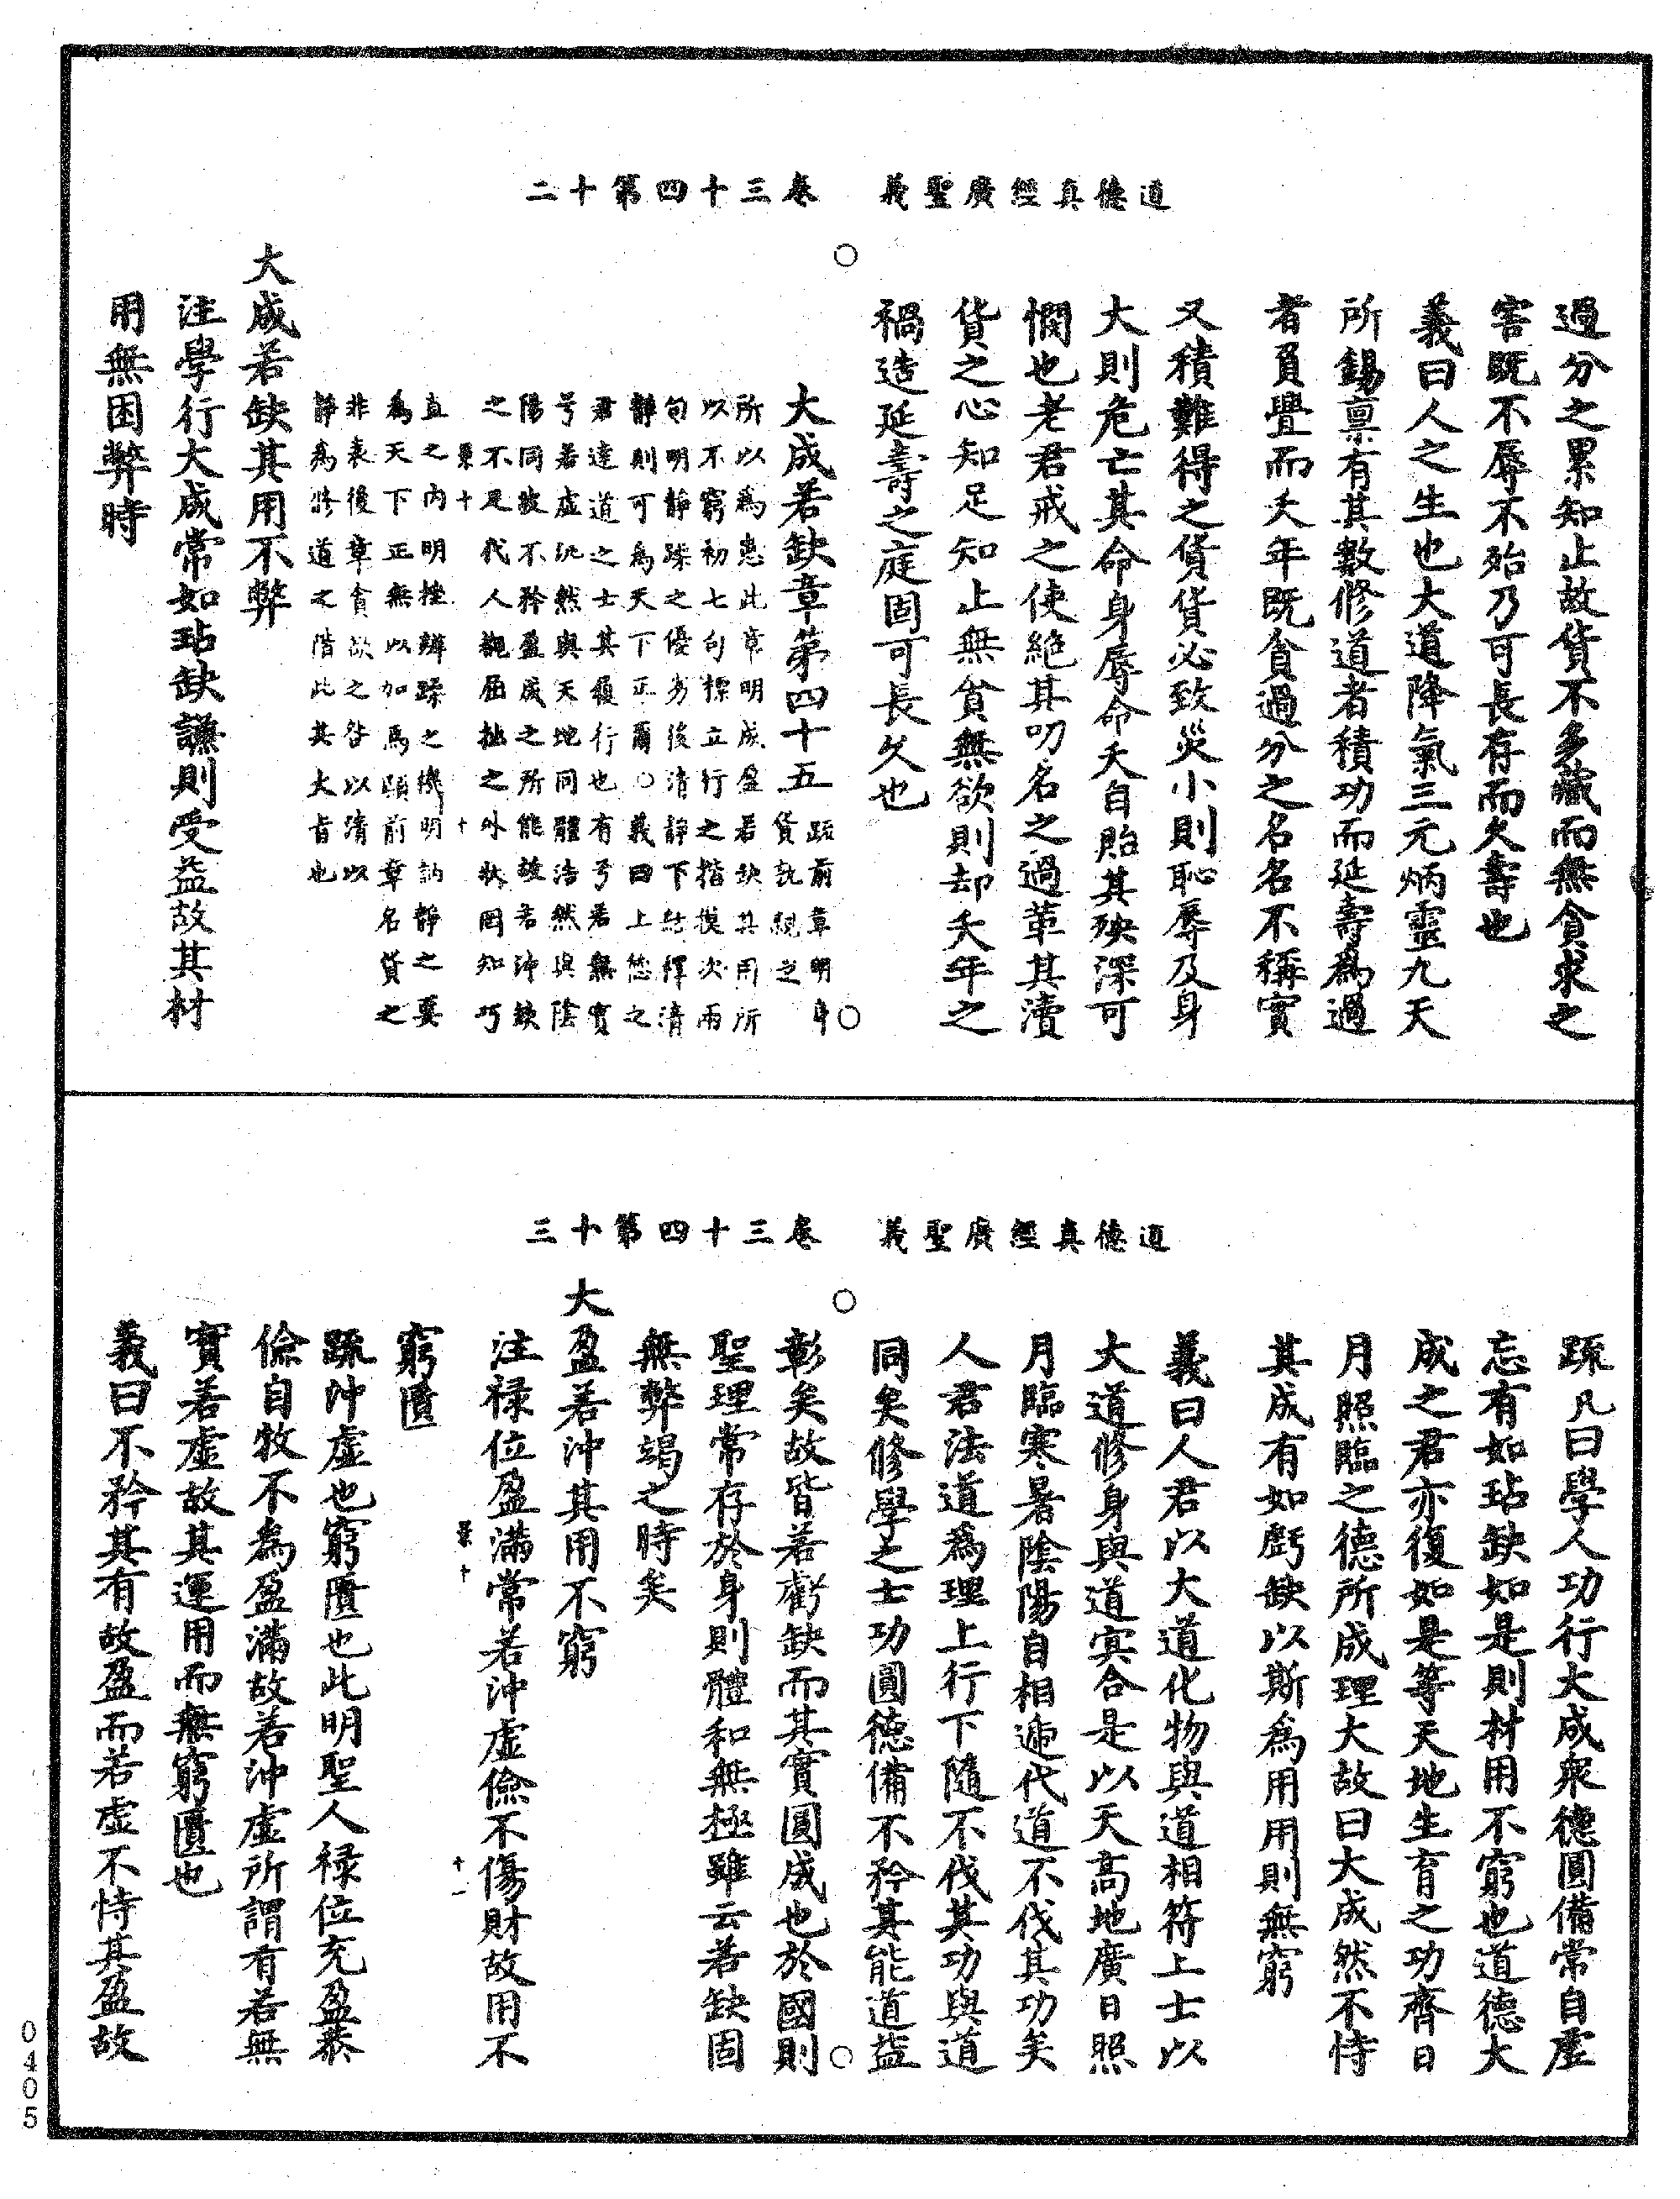 道德真經廣聖義　卷三十四第十二
過分之累知止故貨不多藏而無貪求之
害既不辱不殆乃可長存而久壽也
義曰人之生也大道降氣三元炳靈九天
所錫稟有其數修道者積功而延壽為過
者負舋而夭年既貪過分之名名不稱實
又積難得之貨貨必致災小則恥辱及身
大則危亡其命身辱命夭自貽其殃深可
憫也老君戒之使絕其叨名之過革其瀆
貨之心知足知止無貪無欲則却夭年之
禍造延壽之庭固可長久也
大成若缺章第四十五
疏前章明身
貨孰親之
所以為患此章明成盈若缺其用所
以不窮初七句標立行之楷模次兩
句明靜躁之優劣後清靜下結釋清
靜則可為天下正爾○義曰上德之
君達道之士其履行也有芳若無實
兮若虛汎然與天地同體浩然與陰
陽同波不矜盈成之所能故若沖缺
之不足代人觀屈拙之外狀罔知巧
直之內明挫辯躁之機明訥靜之要
為天下正無以加焉頤前章名貨之
非表後章貪欲之咎以清以
靜為修道之階此其大旨也
大成若缺其用不弊
注學行大成常如玷缺謙則受益故其材
用無困弊時
道德真經廣聖義　卷三十四第十三
疏凡曰學人功行大成眾德圓備常自虛
忘有如玷缺如是則材用不窮也道德大
成之君亦復如是等天地生育之功齊日
月照臨之德所成理大故曰大成然不恃
其成有如虧缺以斯為用用則無窮
義曰人君以大道化物與道相符上士以
大道修身與道冥合是以天高地廣日照
月臨寒暑陰陽自相遞代道不伐其功矣
人君法道為理上行下隨不伐其功與道
同矣修學之士功圓德備不矜其能道益
彰矣故皆若虧缺而其實圓成也於國則
聖理常存於身則體和無極雖云若缺固
無弊竭之時矣
大盈若沖其用不窮
注祿位盈滿常若沖虛儉不傷財故用不
窮匱
疏沖虛也窮匱也此明聖人祿位充盈恭
儉自牧不為盈滿故若沖虛所謂有若無
實若虛故其運用而無窮匱也
義曰不矜其有故盈而若虛不恃其盈故
0405